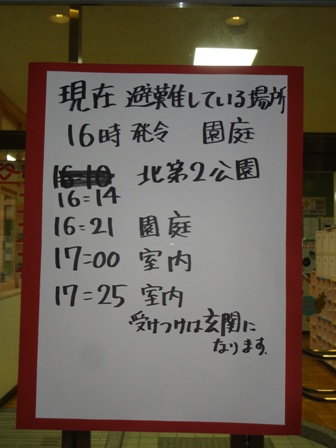 現在 避難している場所
16時 発令 園庭
16=14 北第2公園
16=21 園庭
17=00 室内
17=25 室内
受けつけは玄関に
なります.